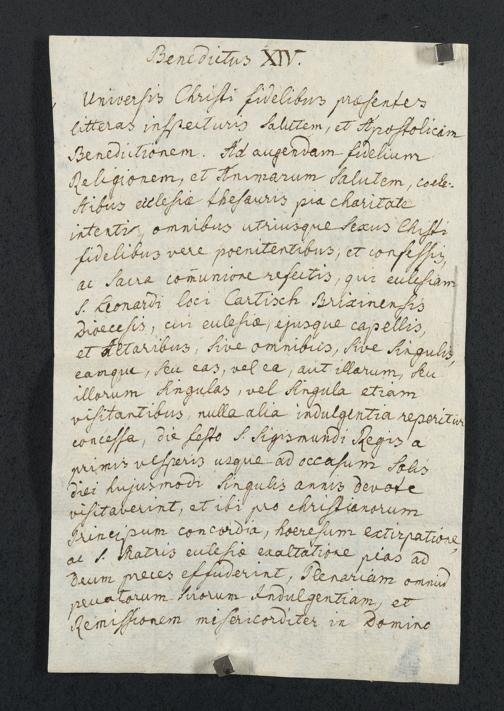 Benedictus XIV.
Universis Christi fidelibus præsentes
litteras inspecturis Salutem, et Apostolicam
Benedictionem. Ad augendam fidelium
Religionem, et Animarum Salutem, cœle-
stibus ecclesiæ thesauris pia charitate
intenti, omnibus utriusque Sexus Christi
fidelibus vere poenitentibus, et confessis,
ac Sacra com̃unione refectis, qui ecclesiam
S. Leonardi loci Cartisch Brixinensis
Dioecesis, cui ecclesiæ, ejusque capellis,
et Altaribus, sive omnibus, sive Singulis,
eamque, seu eas, vel ea, aut illarum, seu
illorum Singulas, vel Singula etiam
visitantibus, nulla alia indulgentia reperitur
concessa, die festo S. Sigismundi Regis a
primis vesperis usque ad occasum Solis
diei hujusmodi Singulis annis devote
visitaverint, et ibi pro christianorum
Principum concordia, hoeresum extirpatione,
ac S. Matris ecclesiæ exaltatione pias ad
Deum preces effuderint, Plenariam omnium
peccatorum suorum Indulgentiam, et
Remissionem misericorditer in Domino